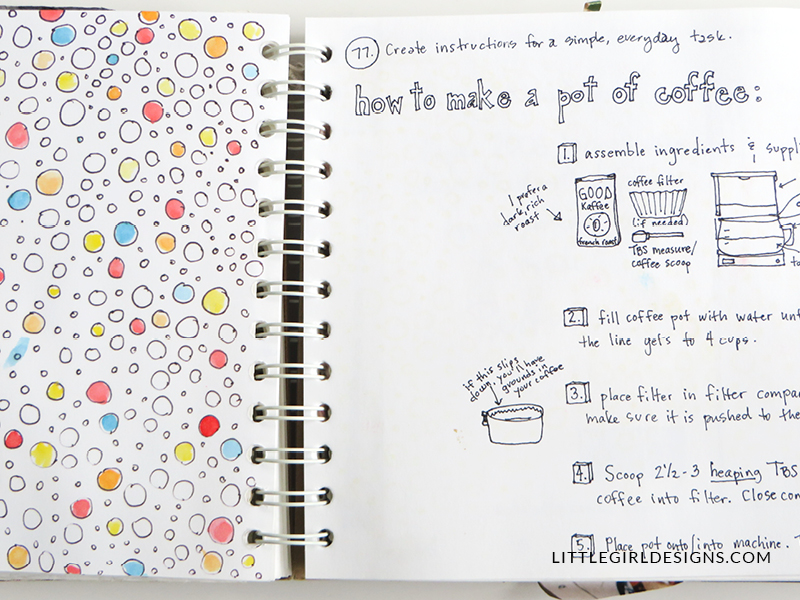 77. Create instructions for a simple, everyday task.
how to make a pot of coffee:
1. assemble ingredients &
I prefer a
dark, rich
roast
GOOD
Kaffee
french roast
coffee filter
(if needed)
TBS measure/
coffee scoop
2. fill coffee pot with water
the line gets to 4 cups.
if this slips
down, you'll have
grounds in
your coffee
3. place filter in filter
make sure it is pushed to the
4. Scoop 2½-3 heaping TBS
coffee into filter. Close
5. Place pot onto/into machine.
LITTLEGIRLDESIGNS.COM